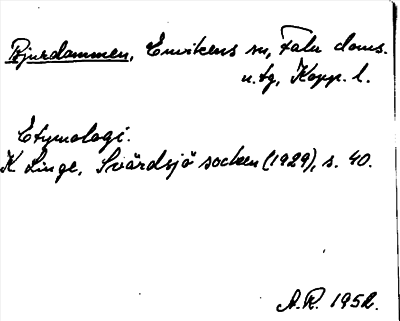 Bjurdammen, Envikens sn, Falu doms.
n.tg, Kopp. l.
Etymologi.
K Linge, Svärdsjö socken (1929), s. 40.
A.R. 1952.